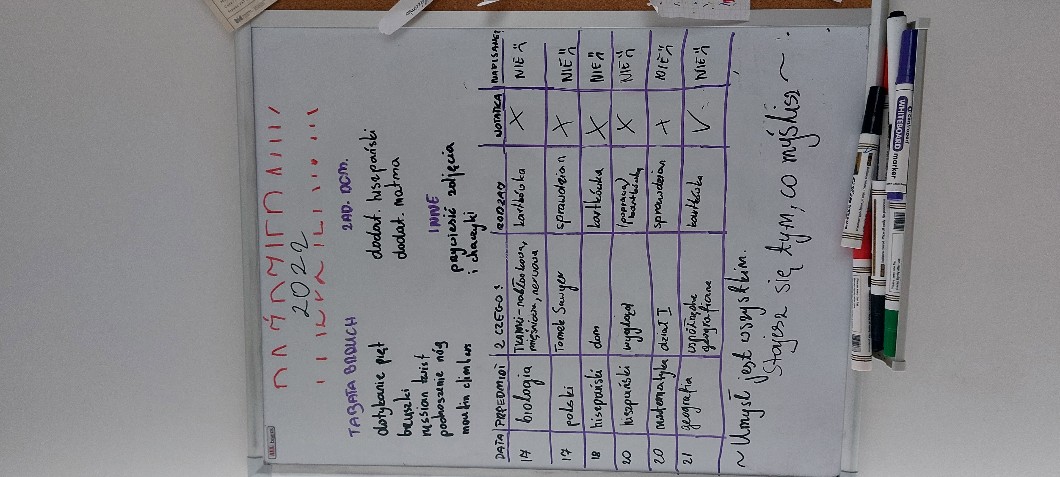 2022
TABATA BRZUCH
dotykanie pięt
brzuszki
russian twist
podnoszenie nóg
ZAD. DOM.
dodat. hiszpański
dodat. matma
INNE
przynieść zdjęcia
DATA PRZEDMIOT Z CZEGO? RODZAJ NOTATKA NAPISANE?
17 biologia Tkanki-nabłonkowa, mięśniowa, nerwowa kartkówka X NIE
17 polski Tomek Sawyer sprawdzian X NIE
18 hiszpański dom kartkówka X NIE
20 hiszpański wygląd (poprawa) kartkówka X NIE
20 matematyka dział I sprawdzian X NIE
21 geografia współrzędne geograficzne kartkówka V NIE
~ Umysł jest wszystkim.
Stajesz się tym, co myślisz ~
WHITEBOARD
marker